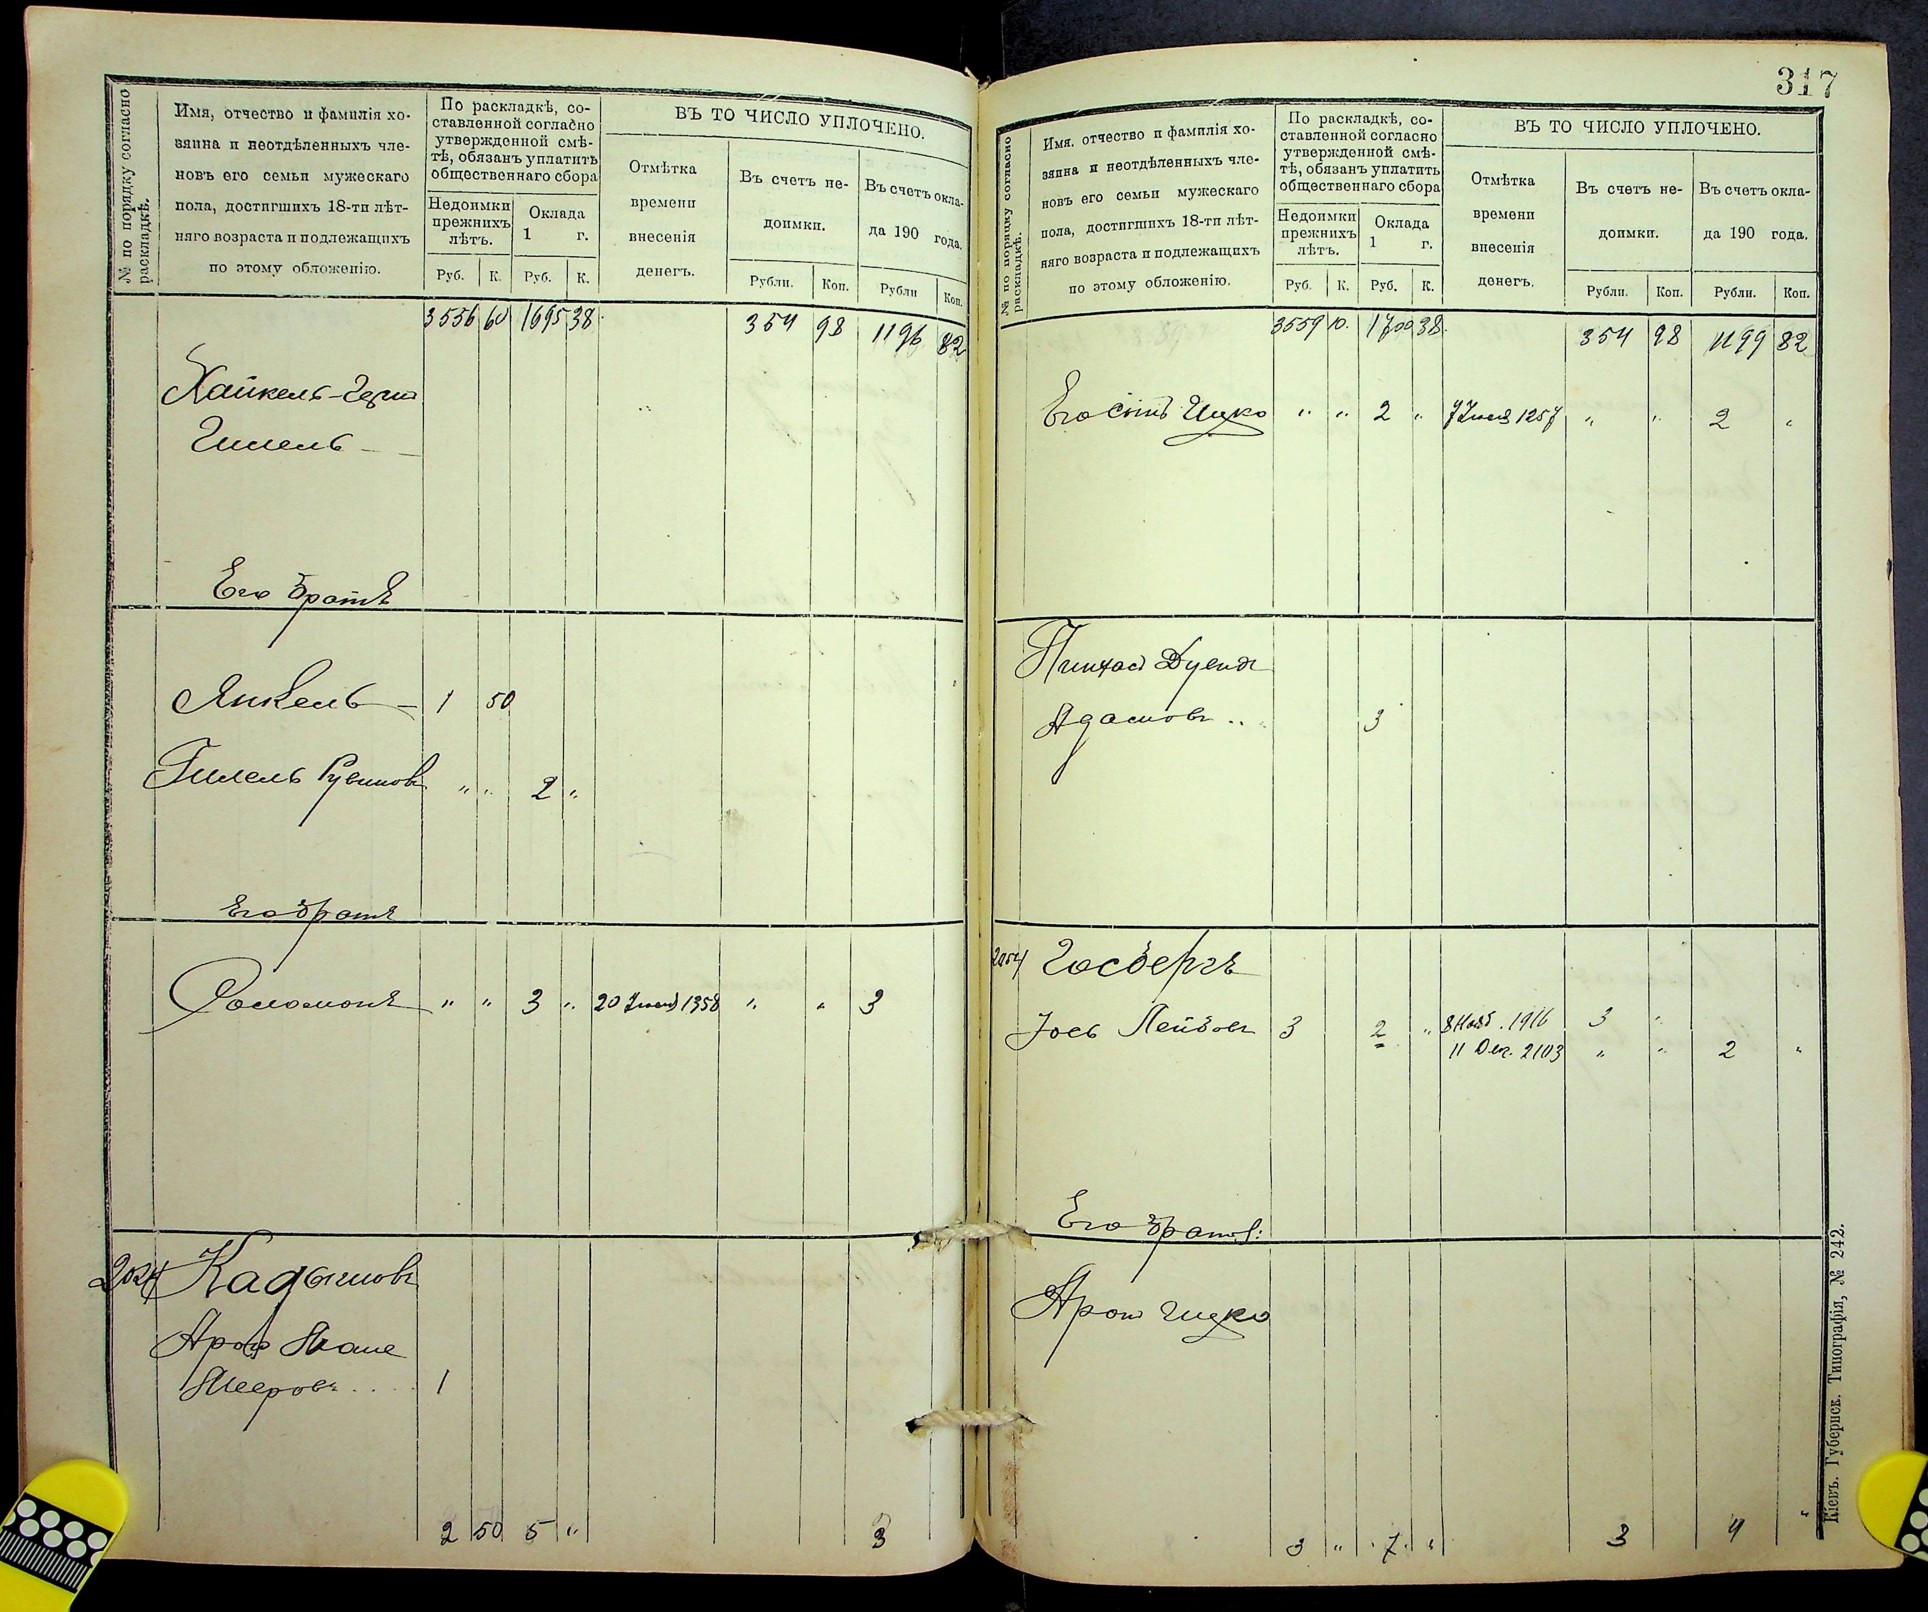 № по порядку согласно раскладкѣ.
Имя, отчество и фамилія хо-
зяина и неотдѣленныхъ чле-
новъ его семьи мужескаго
пола, достигшихъ 18-ти лѣт-
няго возраста и подлежащихъ
по этому обложенію.
По раскладкѣ, со-
ставленной согласно
утвержденной смѣ-
тѣ, обязанъ уплатить
общественнаго сбора
Недоимки
прежнихъ
лѣтъ.
Оклада
1 г.
Руб. К. Руб. К.
ВЪ ТО ЧИСЛО УПЛОЧЕНО.
Отмѣтка
времени
внесенія
денегъ.
Въ счетъ не-
доимки.
Въ счетъ окла-
да 190 года.
Рубли. Коп. Рубли Коп.
3556 60 1695 38 354 98 1196 82
Хайкель-
Его братъ
Янкель 1 50
Гилель Рувиновъ " " 2 "
Его братъ
Соломонъ " " 3 " 20 Іюня 1358 " " 3
2024 Кадышовъ
Арон
Мееровъ 1
2 50 5 " 3
317
№ по порядку согласно раскладкѣ.
Имя, отчество и фамилія хо-
зяина и неотдѣленныхъ чле-
новъ его семьи мужескаго
пола, достигшихъ 18-ти лѣт-
няго возраста и подлежащихъ
по этому обложенію.
По раскладкѣ, со-
ставленной согласно
утвержденной смѣ-
тѣ, обязанъ уплатить
общественнаго сбора
Недоимки
прежнихъ
лѣтъ.
Оклада
1 г.
Руб. К. Руб. К.
ВЪ ТО ЧИСЛО УПЛОЧЕНО.
Отмѣтка
времени
внесенія
денегъ.
Въ счетъ не-
доимки.
Въ счетъ окла-
да 190 года.
Рубли. Коп. Рубли. Коп.
3559 10 1700 38 354 98 1199 82
Его сынъ Ицко " " 2 " 7 Іюня 1257 " " 2 "
Пинхас
Адамовъ 3
Госбергъ
Іось Лейбовъ 3 2 " 8 Нояб. 1916 3 "
11 Дек. 2103 " " 2 "
Его братъ:
Арон Ицко
3 " 7 " 3 4 "
Кіевъ. Губернск. Типографія, № 242.